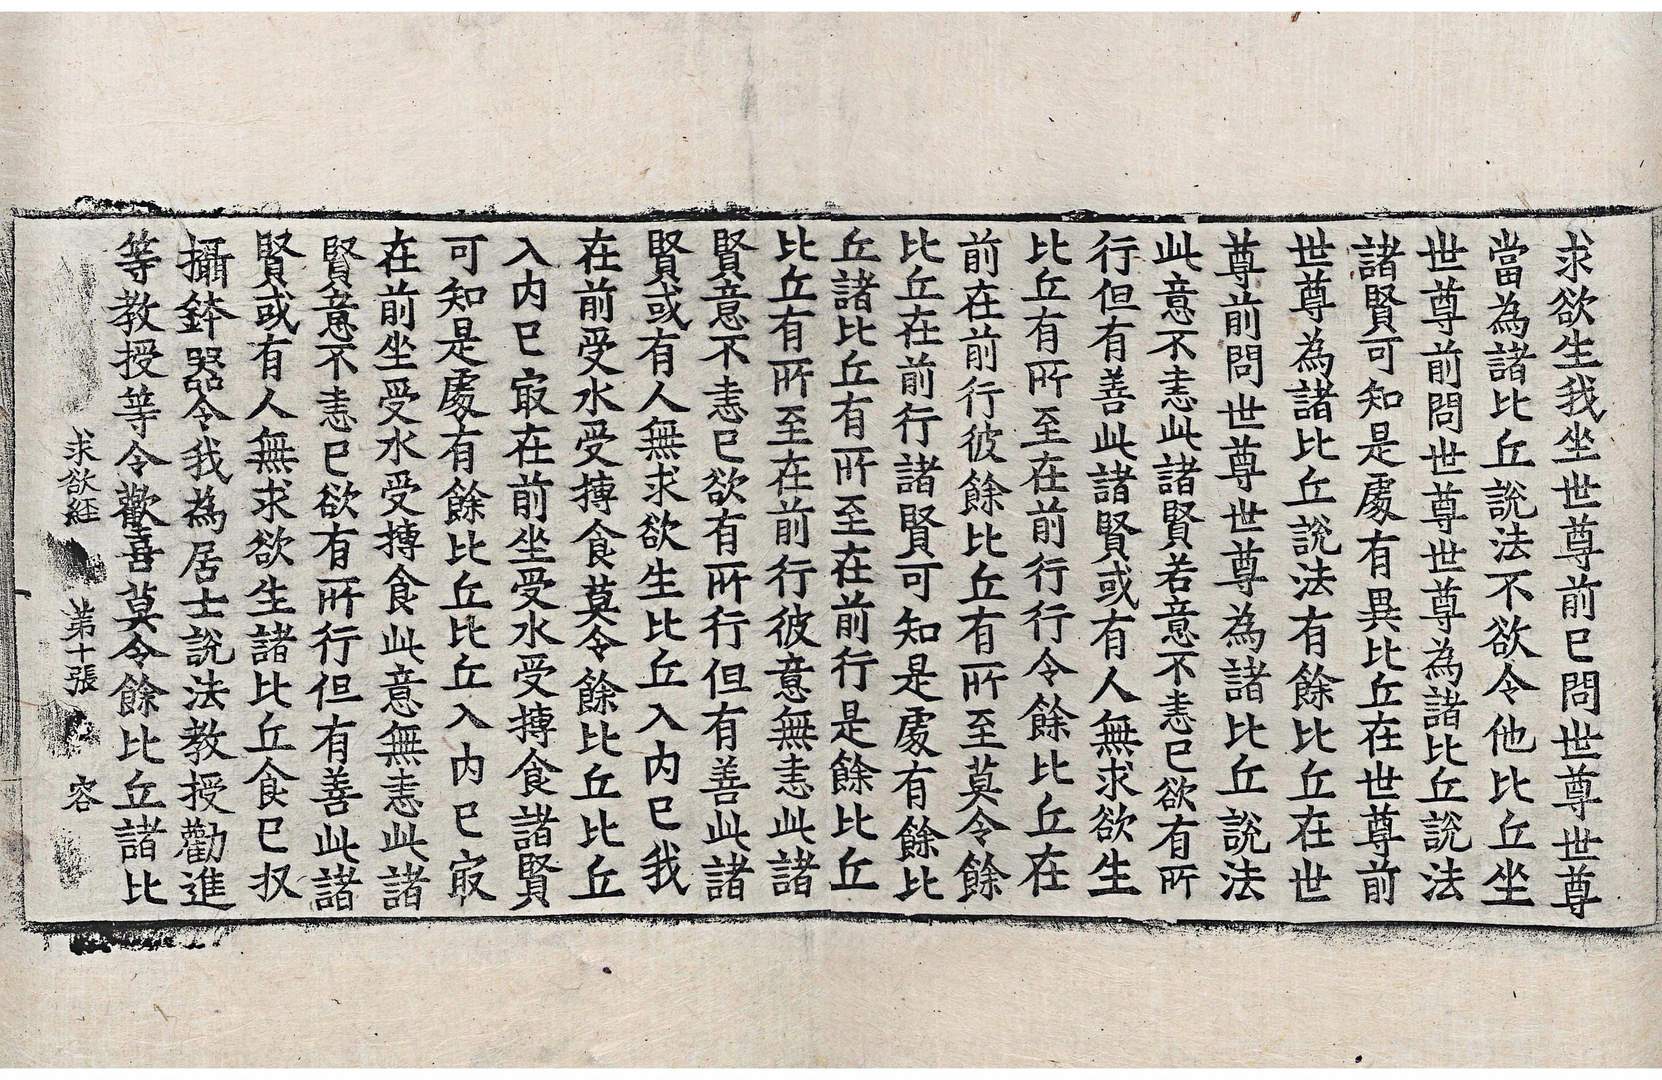 求欲生我坐世尊前已問世尊世尊
當為諸比丘說法不欲令他比丘坐
世尊前問世尊世尊為諸比丘說法
諸賢可知是處有異比丘在世尊前
世尊為諸比丘說法有餘比丘在世
尊前問世尊世尊為諸比丘說法
此意不恚此諸賢若意不恚已欲有所
行但有善此諸賢或有人無求欲生
比丘有所至在前行行令餘比丘在
前在前行彼餘比丘有所至莫令餘
比丘在前行諸賢可知是處有餘比
丘諸比丘有所至在前行是餘比丘
比丘有所至在前行彼意無恚此諸
賢意不恚已欲有所行但有善此諸
賢或有人無求欲生比丘入內已我
在前受水受摶食莫令餘比丘比丘
入內已㝡在前坐受水受摶食諸賢
可知是處有餘比丘比丘入內已㝡
在前坐受水受摶食此意無恚此諸
賢意不恚已欲有所行但有善此諸
賢或有人無求欲生諸比丘食已収
攝鉢器令我為居士說法教授勸進
等教授等令歡喜莫令餘比丘諸比
求欲経 第十張 容